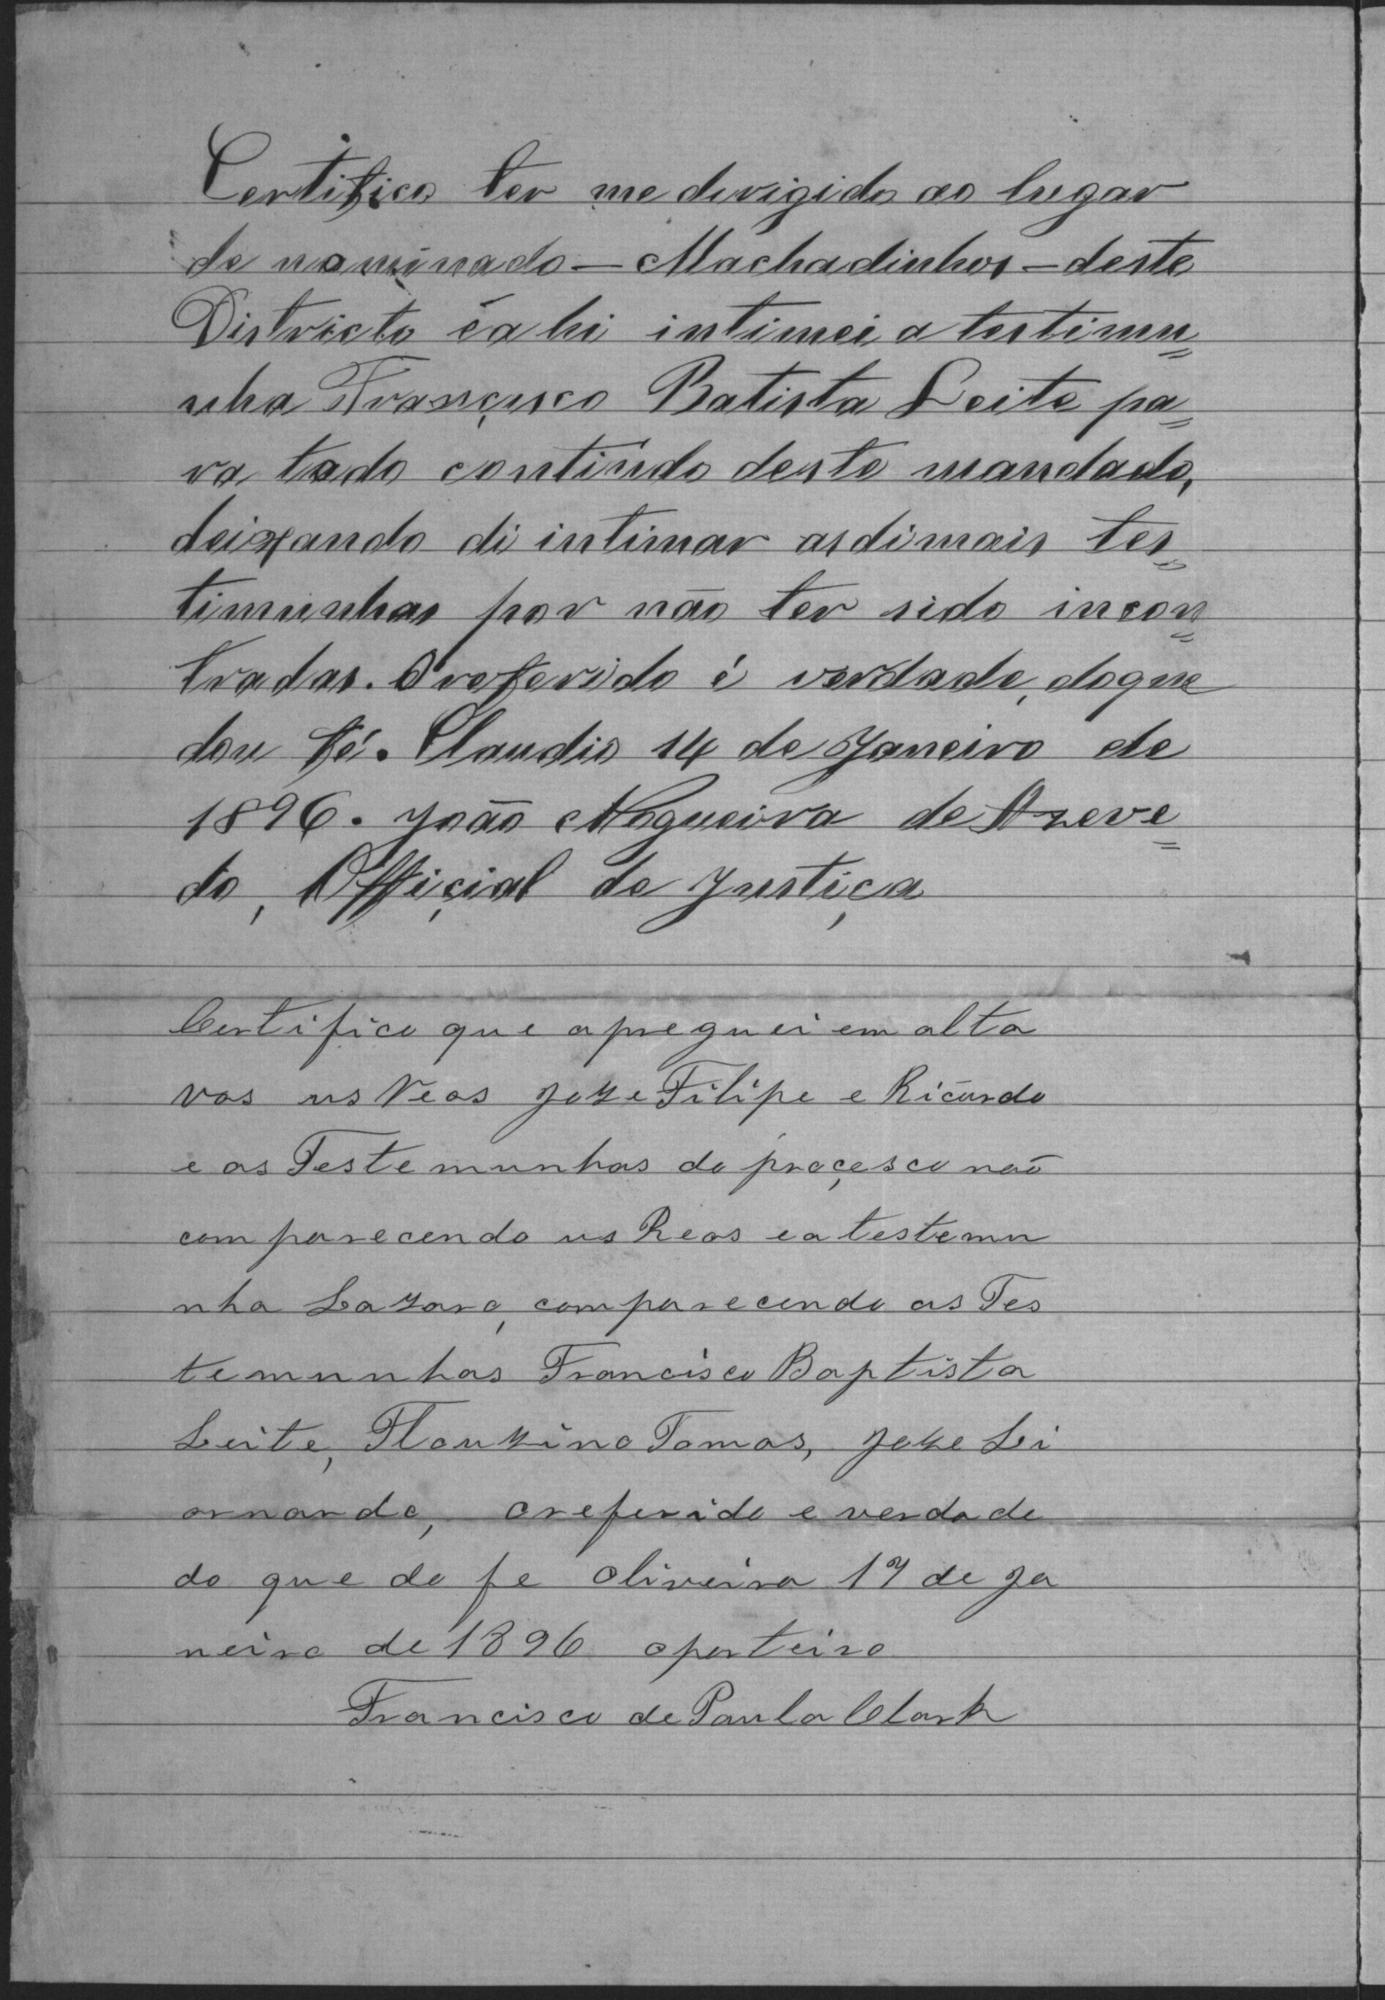 Certifico ter me derigido ao lugar
de nominado — Machadinhos — deste
Districto é ahi intimei a testimu=
nha Françisco Batista Leite pa=
ra todo contiudo deste mandado,
deixando di intimar as dimais tes=
timunhas por não ter sido incon=
tradas. O referido é verdade, do que
dou fé. Claudio 14 de Janeiro de
1896. João Nogueira de Azeve=
do, Offiçial de Justiça
Certifico que apreguei em alta
vos us Reos Joze Filipe e Ricardo
e as Testemunhas do proçesco naõ
comparecendo us Reos e a testemu
nha Lazaro, comparecendo as Tes
temunhas Francisco Baptista
Leite, Flauzino Tomas, Joze Li
ornardo, o referido e verdade
do que do fe Oliveira 17 de Ja
neiro de 1896 o porteiro
Francisco de Paula Clark